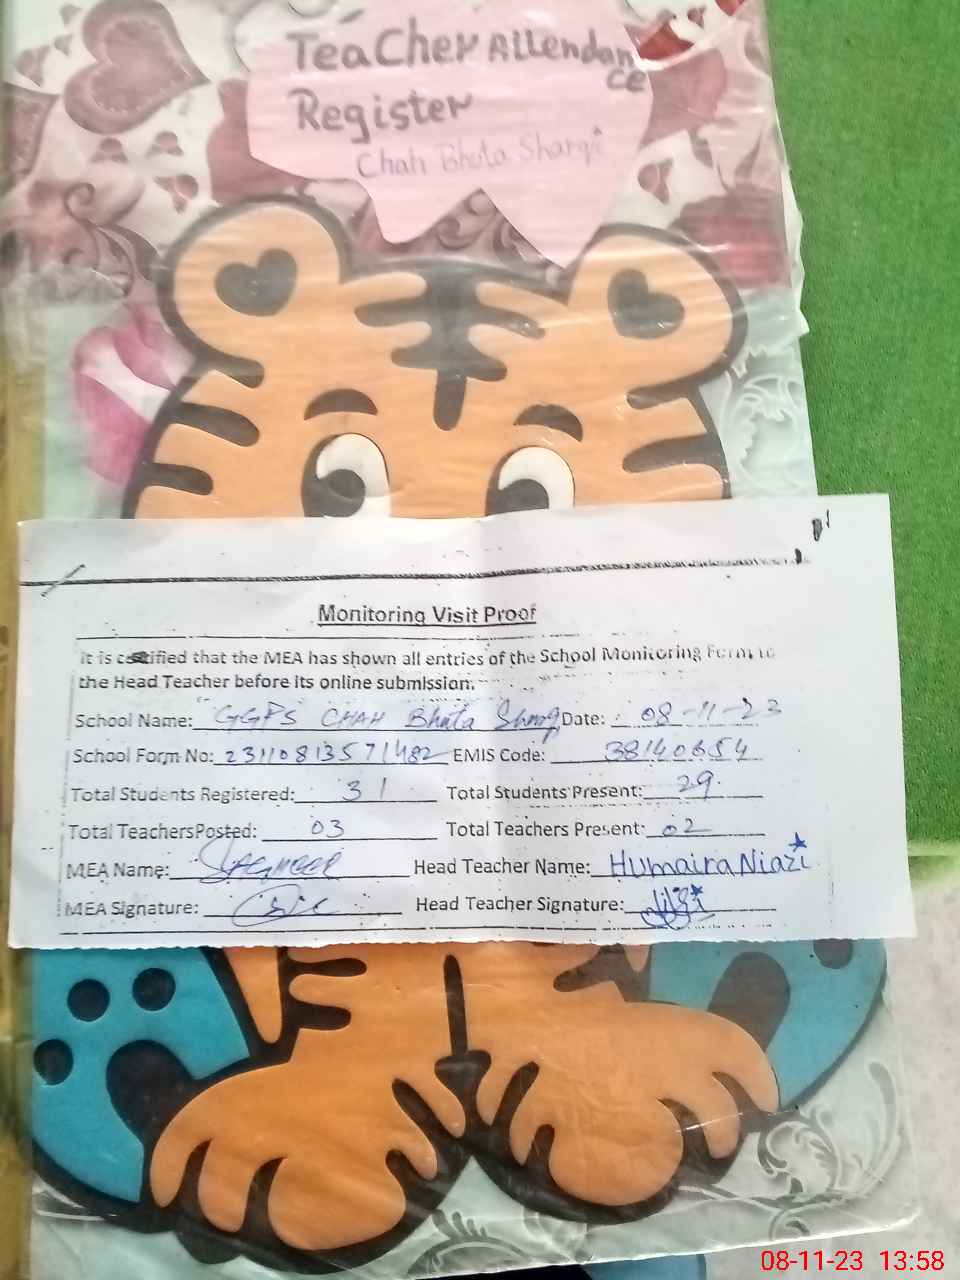 TeaCher Attendan
ce
Register
Chah Bhuta Sharqi
Monitoring Visit Proof
It is certified that the MEA has shown all entries of the School Monitoring Form to
the Head Teacher before its online submission.
School Name: GGPS CHAH Bhuta Sharq Date: 08-11-23
School Form No: 23110813571482 EMIS Code: 38140654
Total Students Registered: 31 Total Students Present: 29
Total TeachersPosted: 03 Total Teachers Present: 02
MEA Name: Head Teacher Name: Humaira Niazi
MEA Signature: Head Teacher Signature:
08-11-23 13:58